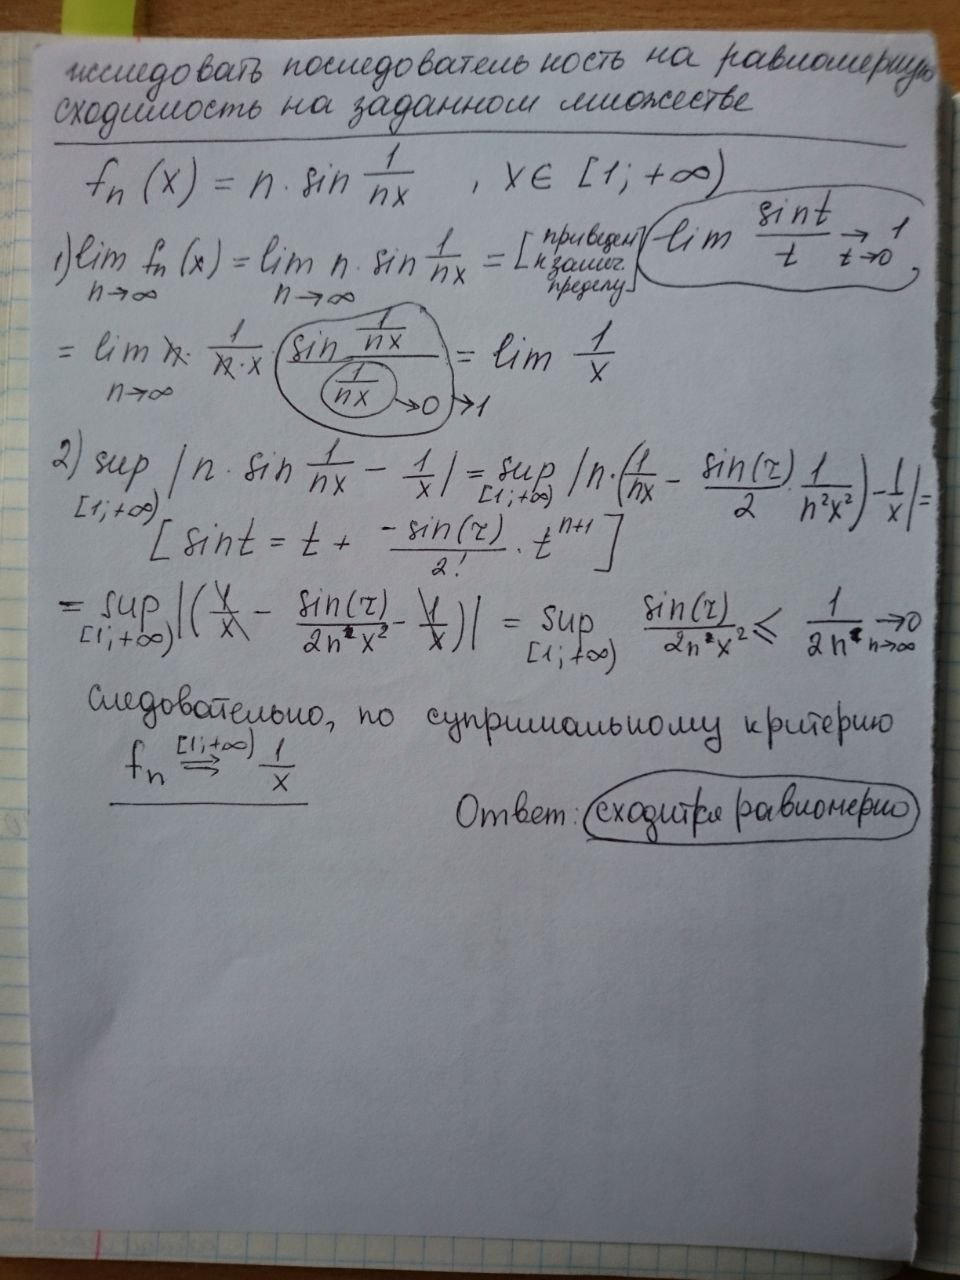 исследовать последовательность на равномерную
сходимость на заданном множестве
fn (x) = n · sin 1/(nx) , x ∈ [1; +∞)
1) lim n→∞ fn (x) = lim n→∞ n · sin 1/(nx) = [приведем к замеч. пределу] lim sint/t → 1 t→0,
= lim n→∞ n · 1/(n·x) · (sin 1/(nx))/(1/(nx)) →0 →1 = lim 1/x
2) sup [1;+∞) |n · sin 1/(nx) − 1/x| = sup [1;+∞) |n·(1/(nx) − sin(τ)/2 · 1/(n²x²)) − 1/x| =
[sint = t + −sin(τ)/2! · t^(n+1)]
= sup [1;+∞) |(1/x − sin(τ)/(2nx²) − 1/x)| = sup [1;+∞) sin(τ)/(2nx²) ≤ 1/(2n) →0 n→∞
Следовательно, по супримальному критерию
fn ⇉ [1;+∞) 1/x
Ответ: сходится равномерно